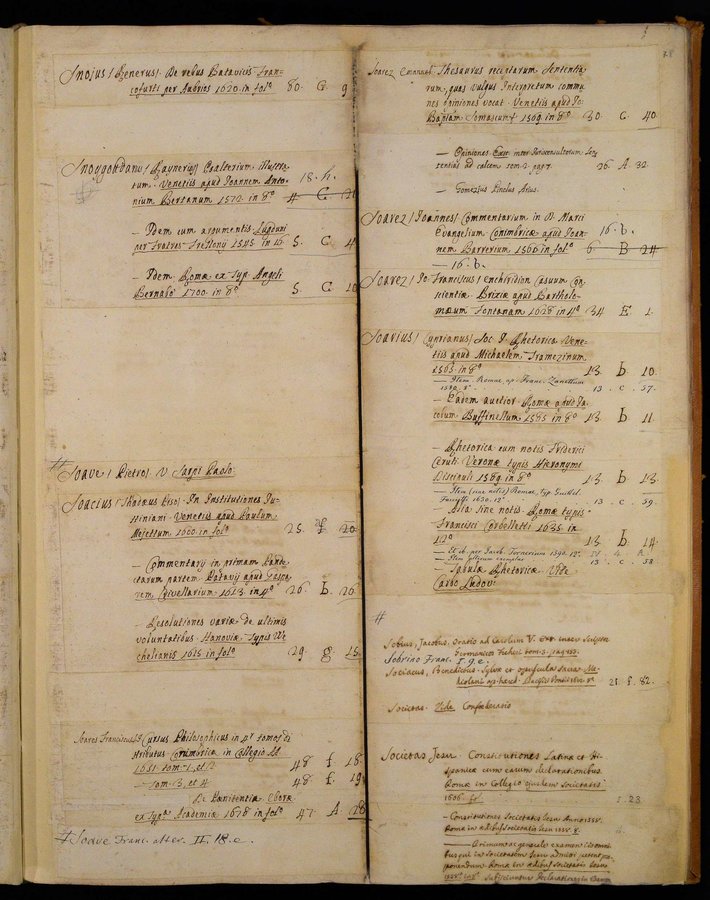 Snoius / Renerus / De rebus Batavicis Fran=
cofurti per Aubrios 1620. in fol.º 80. G. 9
Snoygoudanus / Raynerius / Psalterium illustra-
tum. Venetiis apud Joannem Anto- 18. h.
nium Bertanum 1572. in 8º 4 C. 21
— Idem cum argumentis Lugduni
per Fratres 1545 in 16 5. C. 4
— Idem. Romæ ex Typ. Angeli
Bernabò 1700. in 8º. 5. C. 10
# Soave / Pietro / V. Sarpi Paolo.
Soacius / Thadæus Piso / In Institutiones Ju-
stiniani. Venetiis apud Paulum
Mejettum 1600. in fol.º 25. f. 20
— Commentarij in primam Pande-
ctarum partem Patavij apud Gaspa-
rem Crivellarium 1613. in 4º 26. b. 26
— Resolutiones variæ de ultimis
voluntatibus. Hanoviæ. Typis We
chelianis 1615 in fol.º 29. g. 15
Soares Franciscus / Cursus Philosophicus in 4.r tomos di
stributus Conimbricæ in Collegio
1651. tom. 1. et 2. 48 f. 18
— tom. 3. et 4 48 f. 19
De Pænitentia. Eboræ
ex Typ.ª Academiæ 1678 in fol.º 47. A. 28
# Soave Franc. alter. II. 18. e.
78
Soarez Emanuel. Thesaurus receptarum sententia
rum, quas vulgus Interpretum commu
nes opiniones vocat. Venetiis apud Jo:
Baptam Somascum 1569. in 8º 30. C. 40
— Opiniones
sentias ad calcem tom. 2. pag. 7. 26. A. 32.
— Gomezius Pinelus Arius.
Soarez / Joannes / Commentarium in D. Marci
Evangelium Conimbricæ apud Joan- 16. b.
nem Barrerium 1566 in fol.º 6. B 24
— 16. b.
Soarez / Jo: Franciscus / Enchiridion Casuum Con
scientiæ. Brixiæ apud Bartholo-
mæum Fontanam 1628 in 4º 34 E 1.
Soarius / Cyprianus / Soc. J. Rhetorica Vene-
tiis apud Michaelem Tramezinum.
1565. in 8º 13. b. 10.
— Item. Romæ ap. Franc. Zanettum
1580. 8º. 13. c. 57.
— Eadem auctior. Romæ apud Ja
cobum Ruffinellum 1585 in 8º 13. b. 11.
— Rhetorica cum notis Friderici
Ceruti Veronæ typis Hieronymi
Discipuli 1589. in 8º 13. b. 13.
— Item (sine notis) Romæ, Typ. Guil.
Faciotti 1630. 12º. 13. c. 59.
— Alia sine notis. Romæ typis
Francisci Corbelletti 1635. in
12º 13. b. 14.
— Et id. per Jacob. Tornerium 1590. 12º.
— Item alterum exemplar 13. c. 58.
— Tabulæ Rhetoricæ Vide
Carbo Ludov:
#
Sobius, Jacobus, Oratio ad Carolum V. Ext. inter Script.
Germanicos Freheri tom. 3. pag. 155.
Sobrino Franc. I. 9. e.
Sociacus, Benedictus. Sylvæ et opuscula sacra. Me-
diolani ap. hæred. Pacifici Pontii 1602. 8º 21. f. 82.
Societas. Vide Confœderatio
Societas Jesu. Constitutiones Latinæ et Hi-
spanicæ cum earum declarationibus.
Romæ in Collegio ejusdem Societatis
1606. f.º 5. 23
— Constitutiones Societatis Jesu Anno 1558.
Romæ in ædibus Societatis Jesu 1558. 8.
— Primum ac generale examen iis omni-
bus qui in Societatem Jesu admitti petent pro-
ponendum Romæ in ædibus Societatis Jesu
1558. in 8º. Subjiciuntur Declarationes in Examen